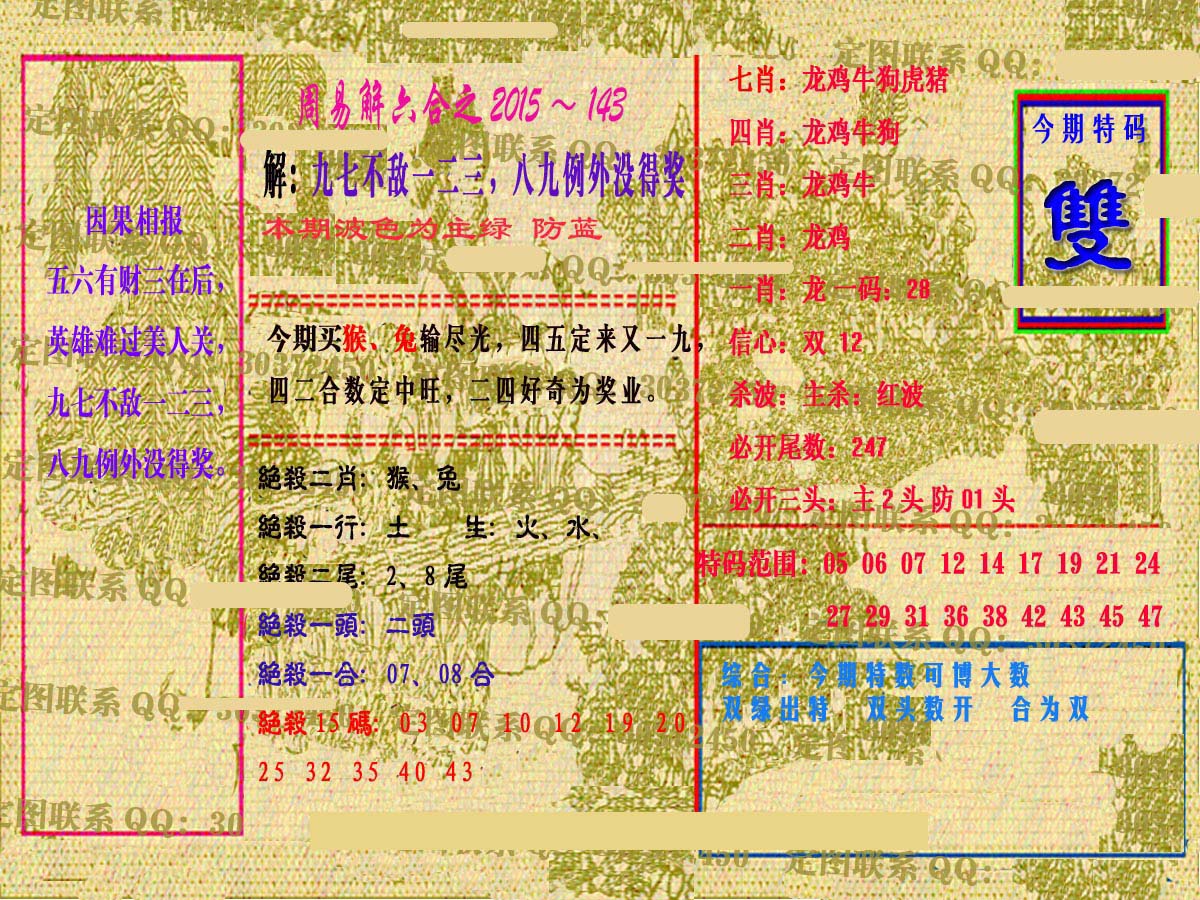 因果相报
五六有财三在后，
英雄难过美人关，
九七不敌一二三，
八九例外没得奖。
周易解六合之2015～143
解：九七不敌一二三，八九例外没得奖
本期波色为主绿 防蓝
今期买猴、兔输尽光，四五定来又一九，
四二合数定中旺，二四好奇为奖业。
絕殺二肖：猴、兔
絕殺一行：土 生：火、水、
絕殺二尾：2、8尾
絕殺一頭：二頭
絕殺一合：07、08合
絕殺15碼：03 07 10 12 19 20
25 32 35 40 43
七肖：龙鸡牛狗虎猪
四肖：龙鸡牛狗
三肖：龙鸡牛
二肖：龙鸡
一肖：龙一码：28
信心：双 12
杀波：主杀：红波
必开尾数：247
必开三头：主2头防01头
今期特码
雙
特码范围：05 06 07 12 14 17 19 21 24
27 29 31 36 38 42 43 45 47
综合：今期特数可博大数
双绿出特 双头数开 合为双
定图联系QQ：